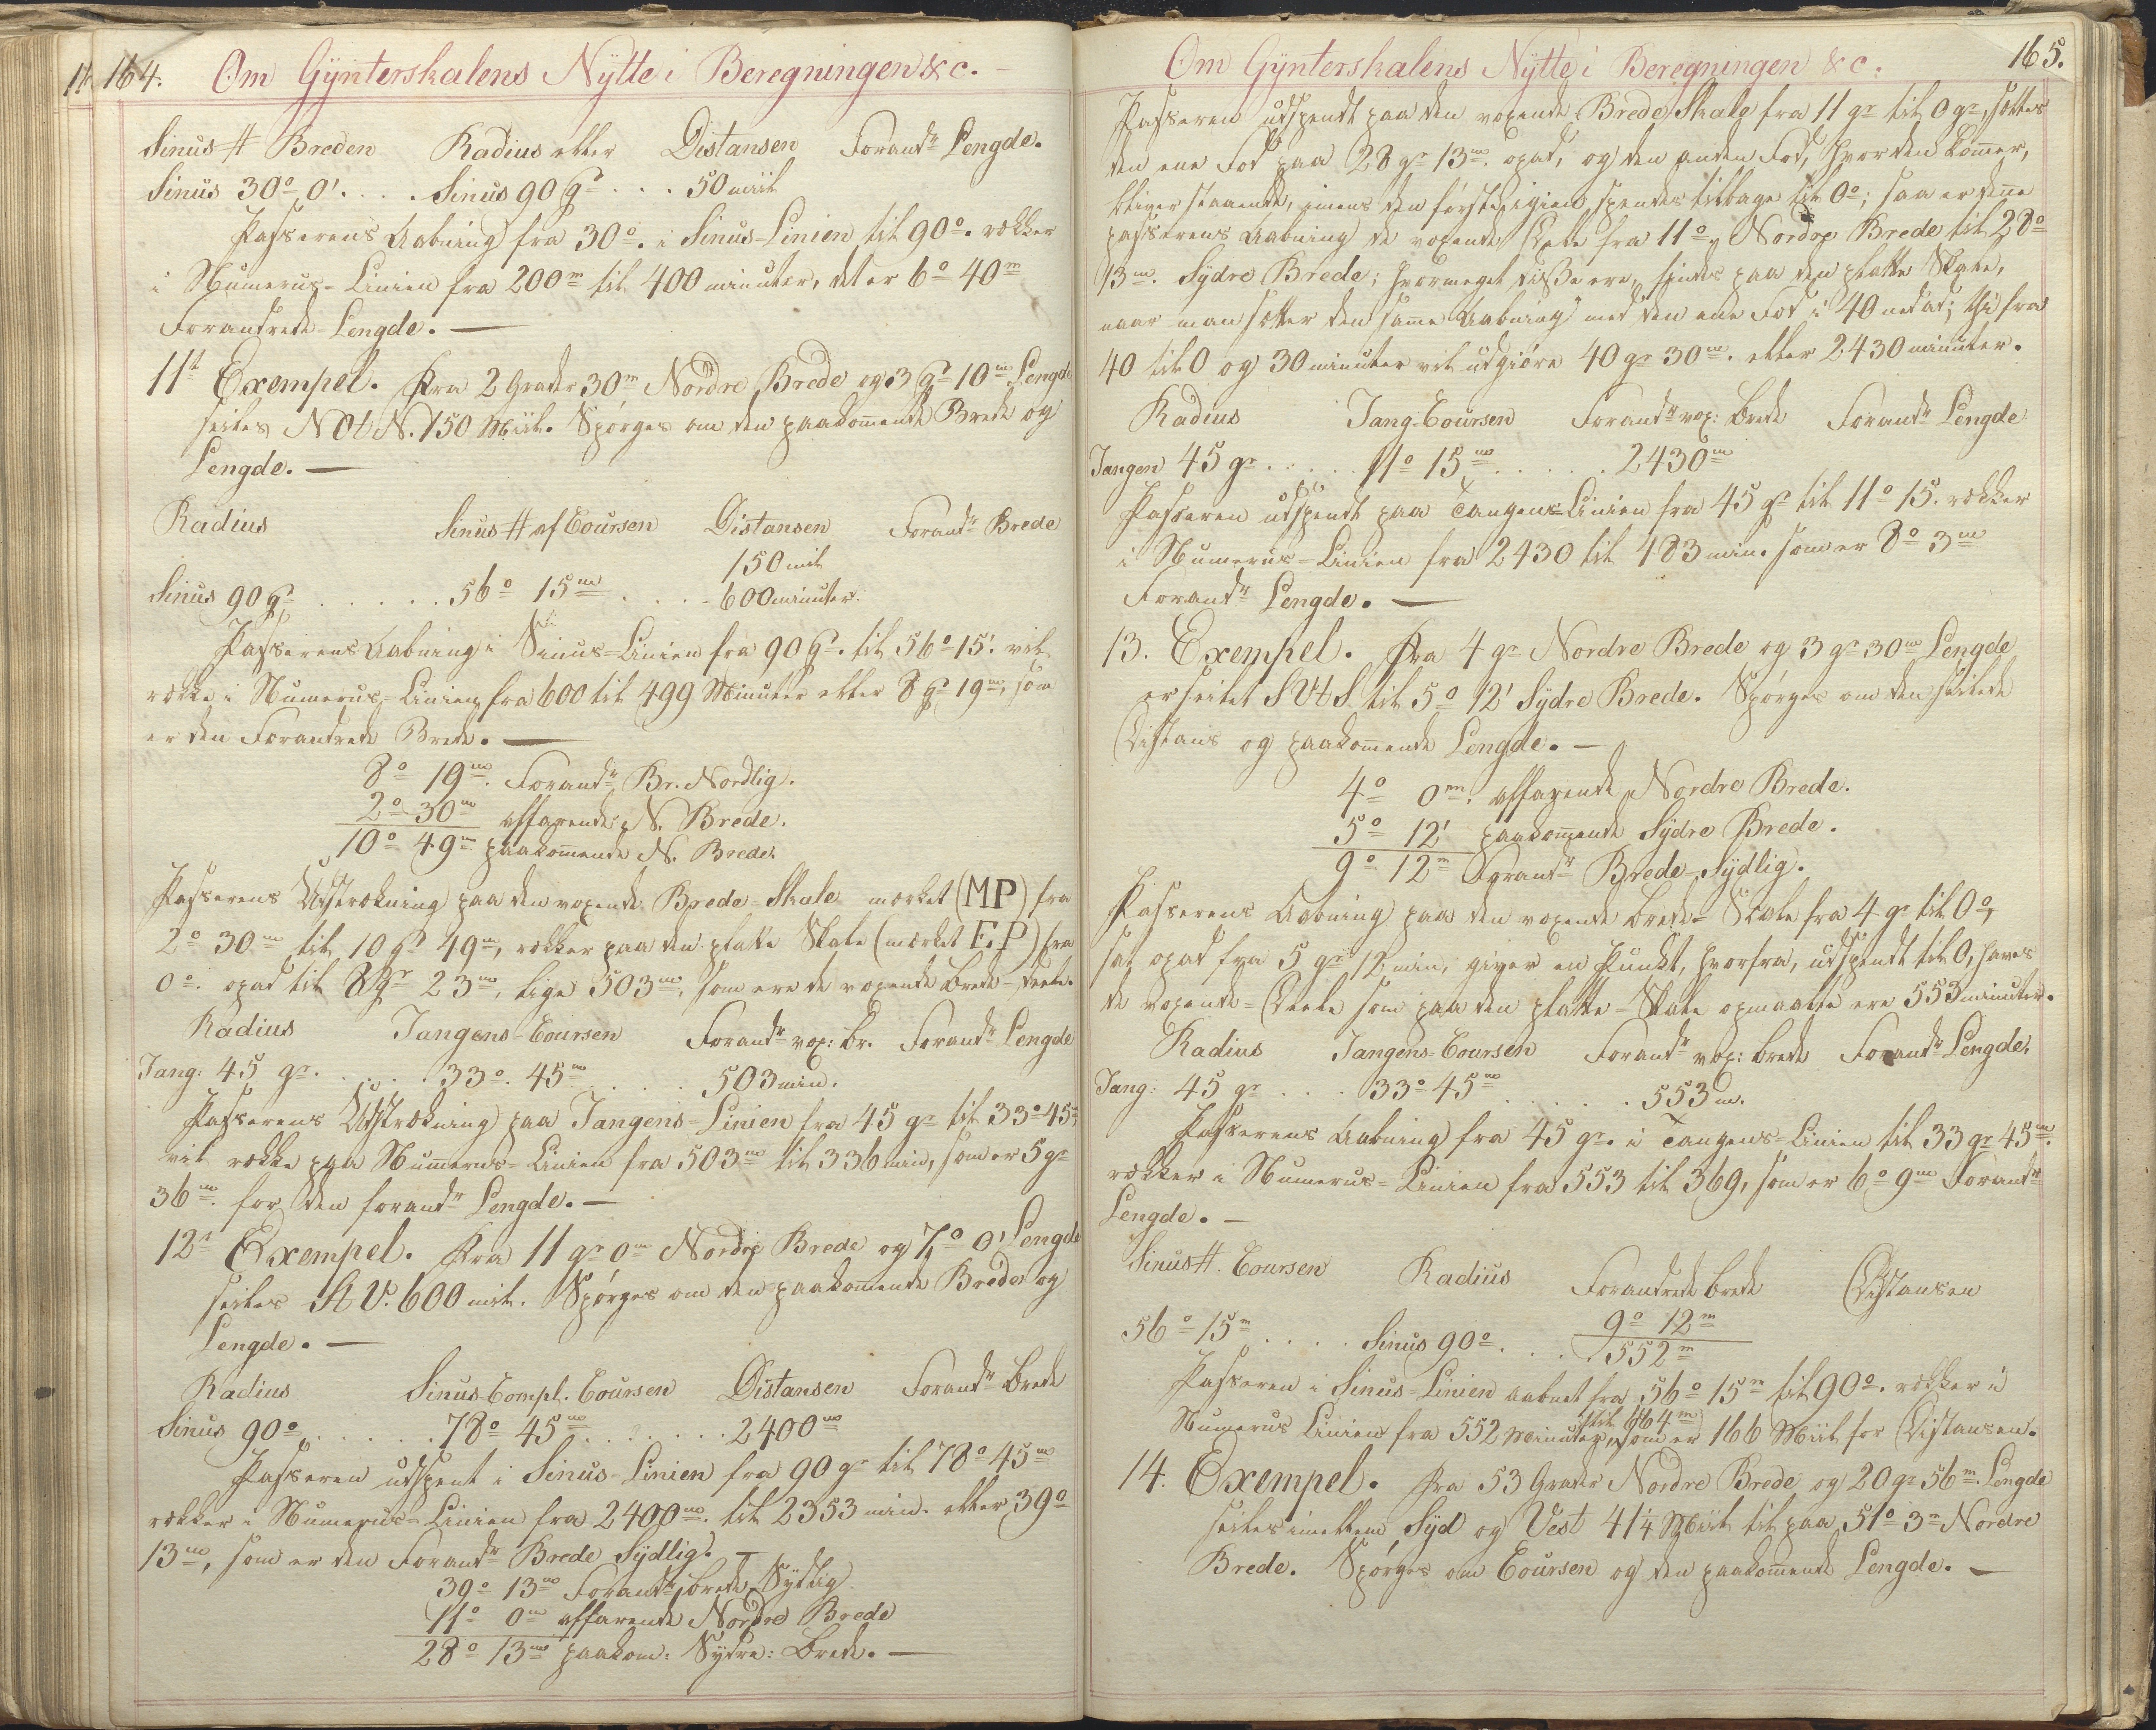 164.
Om Gÿnterskalens Nÿtte i Beregningen &c. —
Sinus # Breden Radius eller Distansen Forandr Lengde.
Sinus 30° 0'. . . . Sinus 90 gr . . . 50 miil
Passerens Aabning fra 30°. i Sinus-Linien til 90°. rekker
i Numerus-Linien fra 200m til 400 minuter, det er 6° 40m
Forandrede Lengde. —
11t Exempel. Fra 2 Grader 30m Nordre Brede og 3 gr 10m Lengde
seiles NOtN. 150 Miil. Spørges om den paakom̄ende Brede og
Lengde. —
Radius Sinus # af Coursen Distansen Forandr Brede
150 mil
Sinus 90 gr . . . . . . 56° 15m . . . . 600 minuter.
Passerens Aabning i Sinus-Linien fra 90 gr. til 56° 15'. vil
rekke i Numerus-Linien fra 600 til 499 Minuter eller 8 gr 19m, som
er den Forandrede Brede. —
8° 19m. Forandr Br. Nordlig.
2° 30m affarende N. Brede.
10° 49m paakom̄ende N. Brede.
Passerens Udstrekning paa den voxende Brede-Skale merket (MP) fra
2° 30m til 10 gr 49m, rekker paa den platte Skale (merket E.P) fra
0°. opad til 8 gr 23m, lige 503m, som ere de voxende Brede-deele.
Radius Tangens-Coursen Forandr vox: br. Forandr Lengde
Tang: 45 gr. . . . . . 33°. 45m . . . . 503 min.
Passerens Udstrekning paa Tangens-Linien fra 45 gr til 33° 45m,
vil rekke paa Num̄erus-Linien fra 503m til 336 min, som er 5 gr
36m. for den forandr Lengde. —
12t Exempel. Fra 11 gr 0m Nordre Brede og 7° 0' Lengde
seiles StV. 600 mil. Spørges om den paakom̄ende Brede og
Lengde. —
Radius Sinus Compl. Coursen Distansen Forandr brede
Sinus 90° . . . . . . 78° 45m . . . . . . 2400m
Passeren udspent i Sinus-Linien fra 90 gr til 78° 45m
rekker i Numerus-Linien fra 2400m. til 2353 min. eller 39°
13m, som er den Forandr Brede Sÿdlig. —
39° 13m Forandr brede Sÿdlig
11° 0m affarende Nordre Brede
28° 13m paakom: Sÿdre: brede. —
165.
Om Gÿnterskalens Nÿtte i Beregningen &c.
Passeren udspendt paa den voxende Brede Skale fra 11 gr til 0 gr, settes
den ene Fod paa 28 gr 13m. opad, og den anden Fod, hvor den kom̄er,
bliver staaende, imens den første igien spendes tilbage til 0°; saa er den̄e
passerens Aabning de voxende deele fra 11° Nordre Brede til 28°
13m. Sÿdre Brede; hvormeget disse ere, findes paa den platte Skale,
naar man setter den sam̄e Aabning med den ene Fod i 40 nedad; thi fra
40 til 0 og 30 minuter vil udgiøre 40 gr 30m. eller 2430 minuter.
Radius Tang. Coursen Forandr vox: brede Forandr Lengde
Tangen 45 gr. . . . . . 11° 15m . . . . . 2430m
Passeren udspendt paa Tangens-Linien fra 45 gr til 11° 15. rekker
i Numerus-Linien fra 2430 til 483 min. som er 8° 3m
Forandr Lengde. —
13. Exempel. Fra 4 gr Nordre Brede og 3 gr 30m Lengde
er seilet SVtS til 5° 12' Sÿdre Brede. Spørges om den seilede
Distans og paakom̄ende Lengde. —
4° 0m. affarende Nordre Brede.
5° 12' paakom̄ende Sÿdre Brede.
9° 12m Forandr Brede Sÿdlig.
Passerens Aabning paa den voxende brede-Skale fra 4 gr til 0°,
sat opad fra 5 gr 12 min, giver en Punkt, hvorfra, udspendt til 0, haves
de voxende-Deele som paa den platte-Skale opmaalte ere 553 minuter.
Radius Tangens-Coursen Forandr vox: brede Forandr Lengde.
Tang: 45 gr . . . 33° 45m . . . . . 553m.
Passerens Aabning fra 45 gr. i Tangens-Linien til 33 gr 45m.
rekker i Numerus-Linien fra 553 til 369, som er 6° 9m Forandr
Lengde. —
Sinus #. Coursen Radius Forandrede brede Distansen
9° 12m
56° 15m . . . . Sinus 90° . . . . 552m
Passeren i Sinus-Linien aabnet fra 56° 15m til 90°. rekker i
til 664m
Numerus Linien fra 552 Minuter, som er 166 Miil for Distansen.
14. Exempel. Fra 53 Grader Nordre Brede og 20 gr 56m Lengde
seiles imellem Sÿd og Vest 41¼ Miil til paa 51° 3m Nordre
Brede. Spørges om Coursen og den paakom̄ende Lengde. —